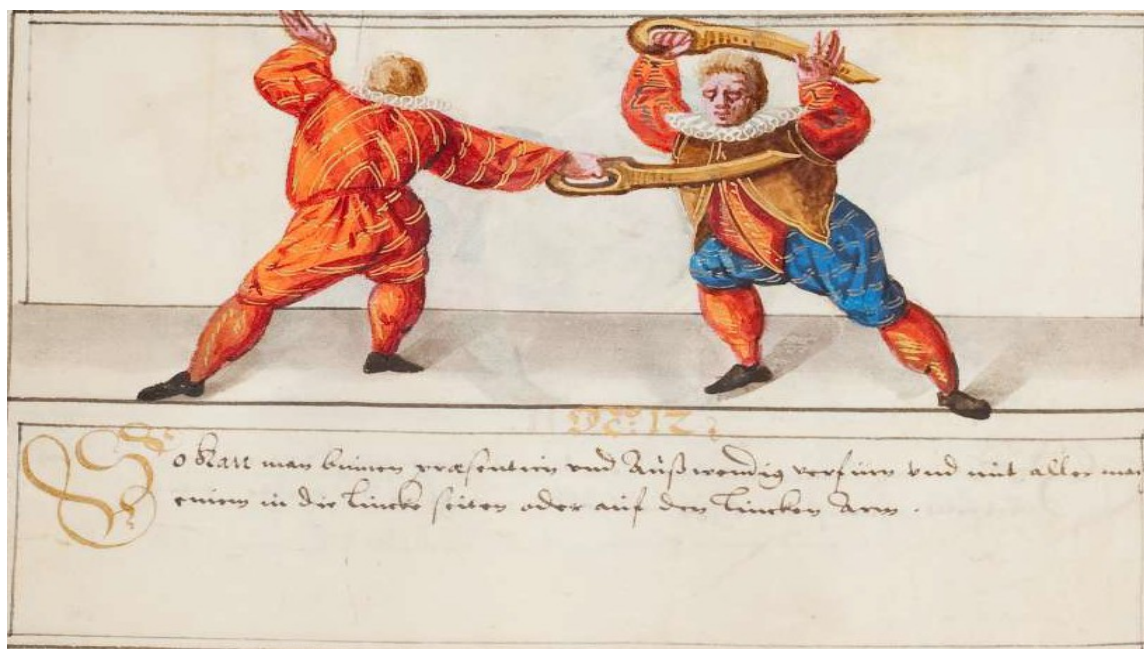 No: 12
So kan man binnen præsentirn vnd Außwendig verfürn vnd mit aller
einem in die lincke seiten oder auf den lincken Arm.